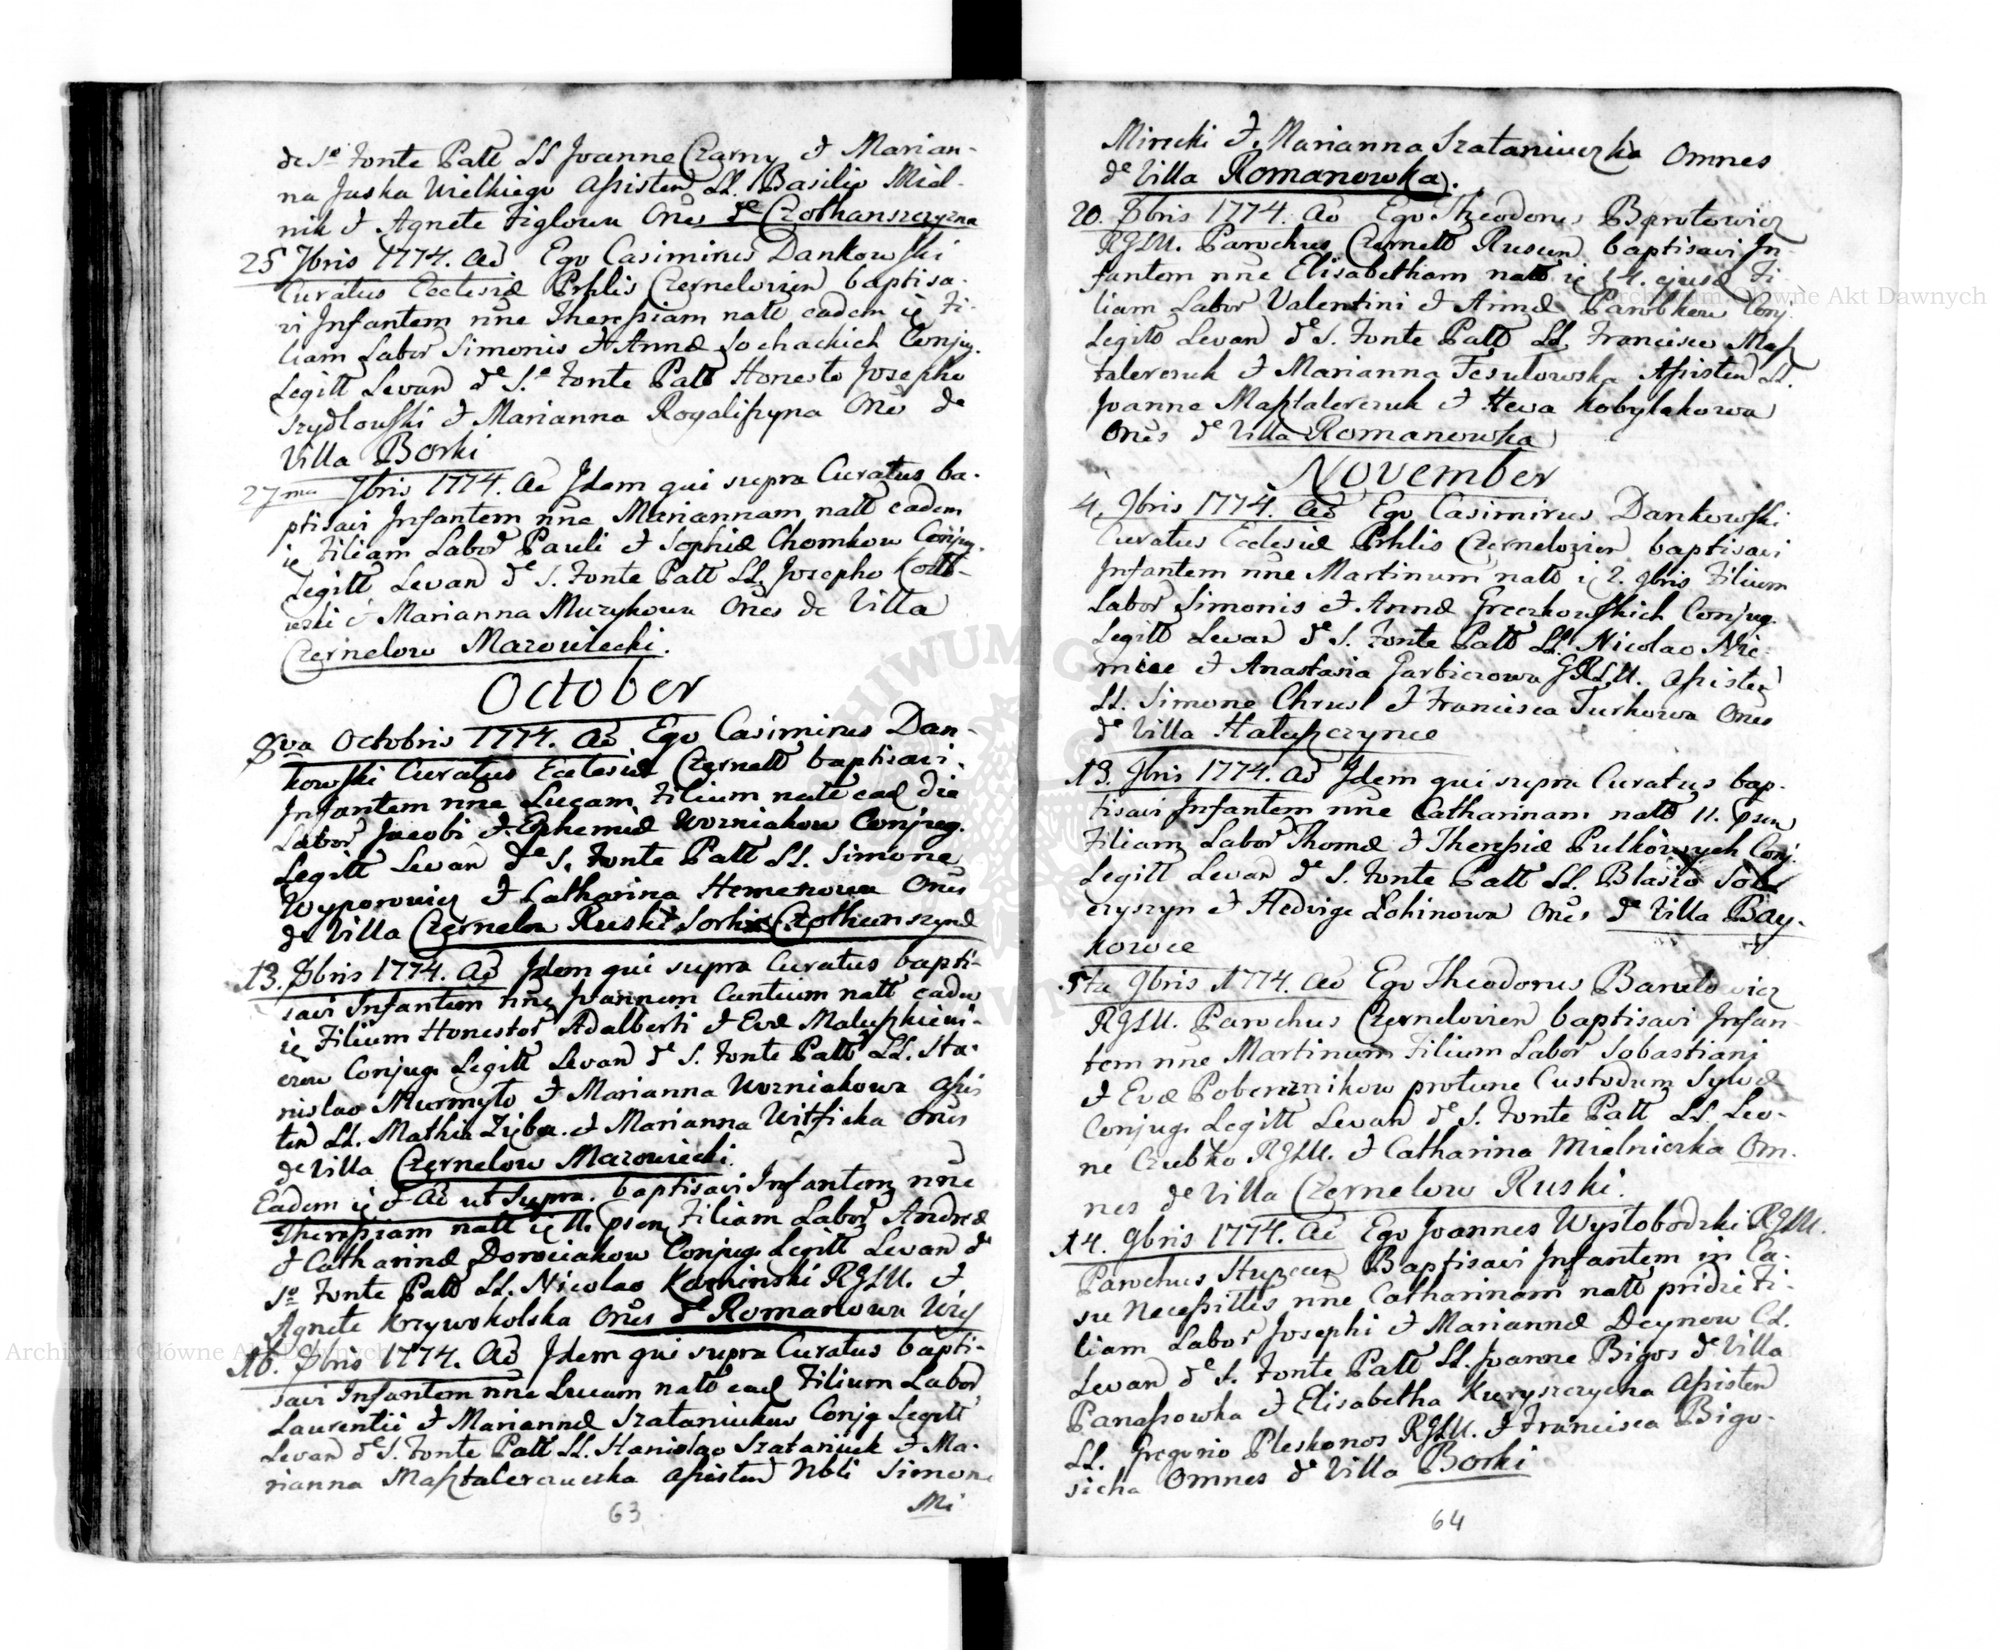 de So Fonte Patt LL Joanne Czarny et Marian-
na Juska Wielkiego Assisten LL. Basilio Miel-
nik et Agnete Figlowa Ones de Czothanszczyzna
25 7bris 1774. Ao Ego Casimirus Dankowski
Curatus Ecclesiæ Prhlis Czernelovien baptisa-
vi Infantem nne Theressiam natt eadem ie Fi-
liam Labor Simonis et Annæ Sochackich Conjug.
Legitt Levan de S.o Fonte Patt Honesto Josepho
Szydlowski et Marianna Rogaliszyna Ones de
Villa Borki
27ma 7bris 1774. Ao Idem qui supra Curatus ba-
ptisavi Infantem nne Mariannam natt eadem
ie Filiam Labor Pauli et Sophiæ Chomkow Conjug.
Legitt Levan de S. Fonte Patt LL. Josepho
et Marianna Muzykowa Ones de Villa
Czernelow Mazowiecki.
October
8va Octobris 1774. Ao Ego Casimirus Dan-
kowski Curatus Ecclesiæ Czernell baptisavi
Infantem nne Lucam Filium natt ead die
Labor Jacobi et Ephemiæ Wozniakow Conjug.
Legitt Levan de S. Fonte Patt LL. Simone
Wyporowicz et Catharina Hemenowa Ones
de Villa Czernelow Ruski
13. 8bris 1774. Ao Idem qui supra Curatus bapti-
savi Infantem nne Joannem Cantium natt eadem
ie Filium Honestor Adalberti et Evæ
Conjug. Legitt Levan de S. Fonte Patt LL. Sta-
nislao Murmyło et Marianna Wozniakowa Assis
ten LL. Mathia Zięba et Marianna Ones
de Villa Czernelow Mazowiecki.
Eadem ie et Ao ut Supra. baptisavi Infantem nne
Theressiam natt ie 11. psen Filiam Labor Andreæ
et Catharinæ Dorociakow Conjug. Legitt Levan de
So Fonte Patt LL. Nicolao Kaminski RGLU. et
Agnete Krzywokolska Ones de Romanowa
16. 8bris 1774. Ao Idem qui supra Curatus bapti-
savi Infantem nne Lucam natt ead Filium Labor
Laurentii et Mariannæ Szataniukow Conjg Legitt
Levan de S. Fonte Patt LL. Stanislao Szataniuk et Ma-
rianna Masztalerczucska Assisten Nbli Simone
Mi
63
Mirecki et Marianna Szataniuczka Omnes
de Villa Romanowka.
20. 8bris 1774. Ao Ego Theodorus Barutowicz
RGLU. Parochus Czernell Rusien baptisavi In-
fantem nne Elisabetham natt ie 14. ejusd Fi-
liam Labor Valentini et Annæ Parobkow Conj.
Legitt Levan de S. Fonte Patt LL. Francisco Masz
talerczuk et Marianna Tesulowska Assisten LL.
Joanne Masztalerczuk et Hewa Kobylakowa
Ones de Villa Romanowka
November
4. 9bris 1774. Ao Ego Casimirus Dankowski
Curatus Ecclesiæ Prhlis Czernelovien baptisavi
Infantem nne Martinum natt ie 2. 9bris Filium
Labor Simonis et Annæ Greczkowskich Conjug.
Legitt Levan de S. Fonte Patt LL. Nicolao Nie-
miec et Anastasia Garbiczowa GRLU. Assisten
LL. Simone Chrust et Francisca Turkowa Ones
de Villa Hałuszczynce
13. 9bris 1774. Ao Idem qui supra Curatus bap-
tisavi Infantem nne Catharinam natt 11. psen
Filiam Labor Thomæ et Theressiæ Pulkownych Conj.
Legitt Levan de S. Fonte Patt LL. Blasio Sob
czyszyn et Hedvige Lohinowa Ones de Villa Bay-
kowce
5ta 9bris 1774. Ao Ego Theodorus Barutowicz
RGLU. Parochus Czernelovien baptisavi Infan-
tem nne Martinum Filium Labor Sobastiani
et Evæ Pobereznikow protunc Custodum Sylvæ
Conjug. Legitt Levan de S. Fonte Patt LL. Leo-
ne Czubko RGLU. et Catharina Mielniczka Om-
nes de Villa Czernelow Ruski.
14. 9bris 1774. Ao Ego Joannes Wysłobodzki RGLU.
Parochus Baptisavi Infantem in Ca-
su Necessittis nne Catharinam natt pridie Fi-
liam Labor Josephi et Mariannæ Deynow CL.
Levan de S. Fonte Patt LL. Joanne Bigos de Villa
Panassowka et Elisabetha Kuryszczycha Assisten
LL. Gregorio Pleskonos RGLU. et Francisca Bigo-
sicha Omnes de Villa Borki
64